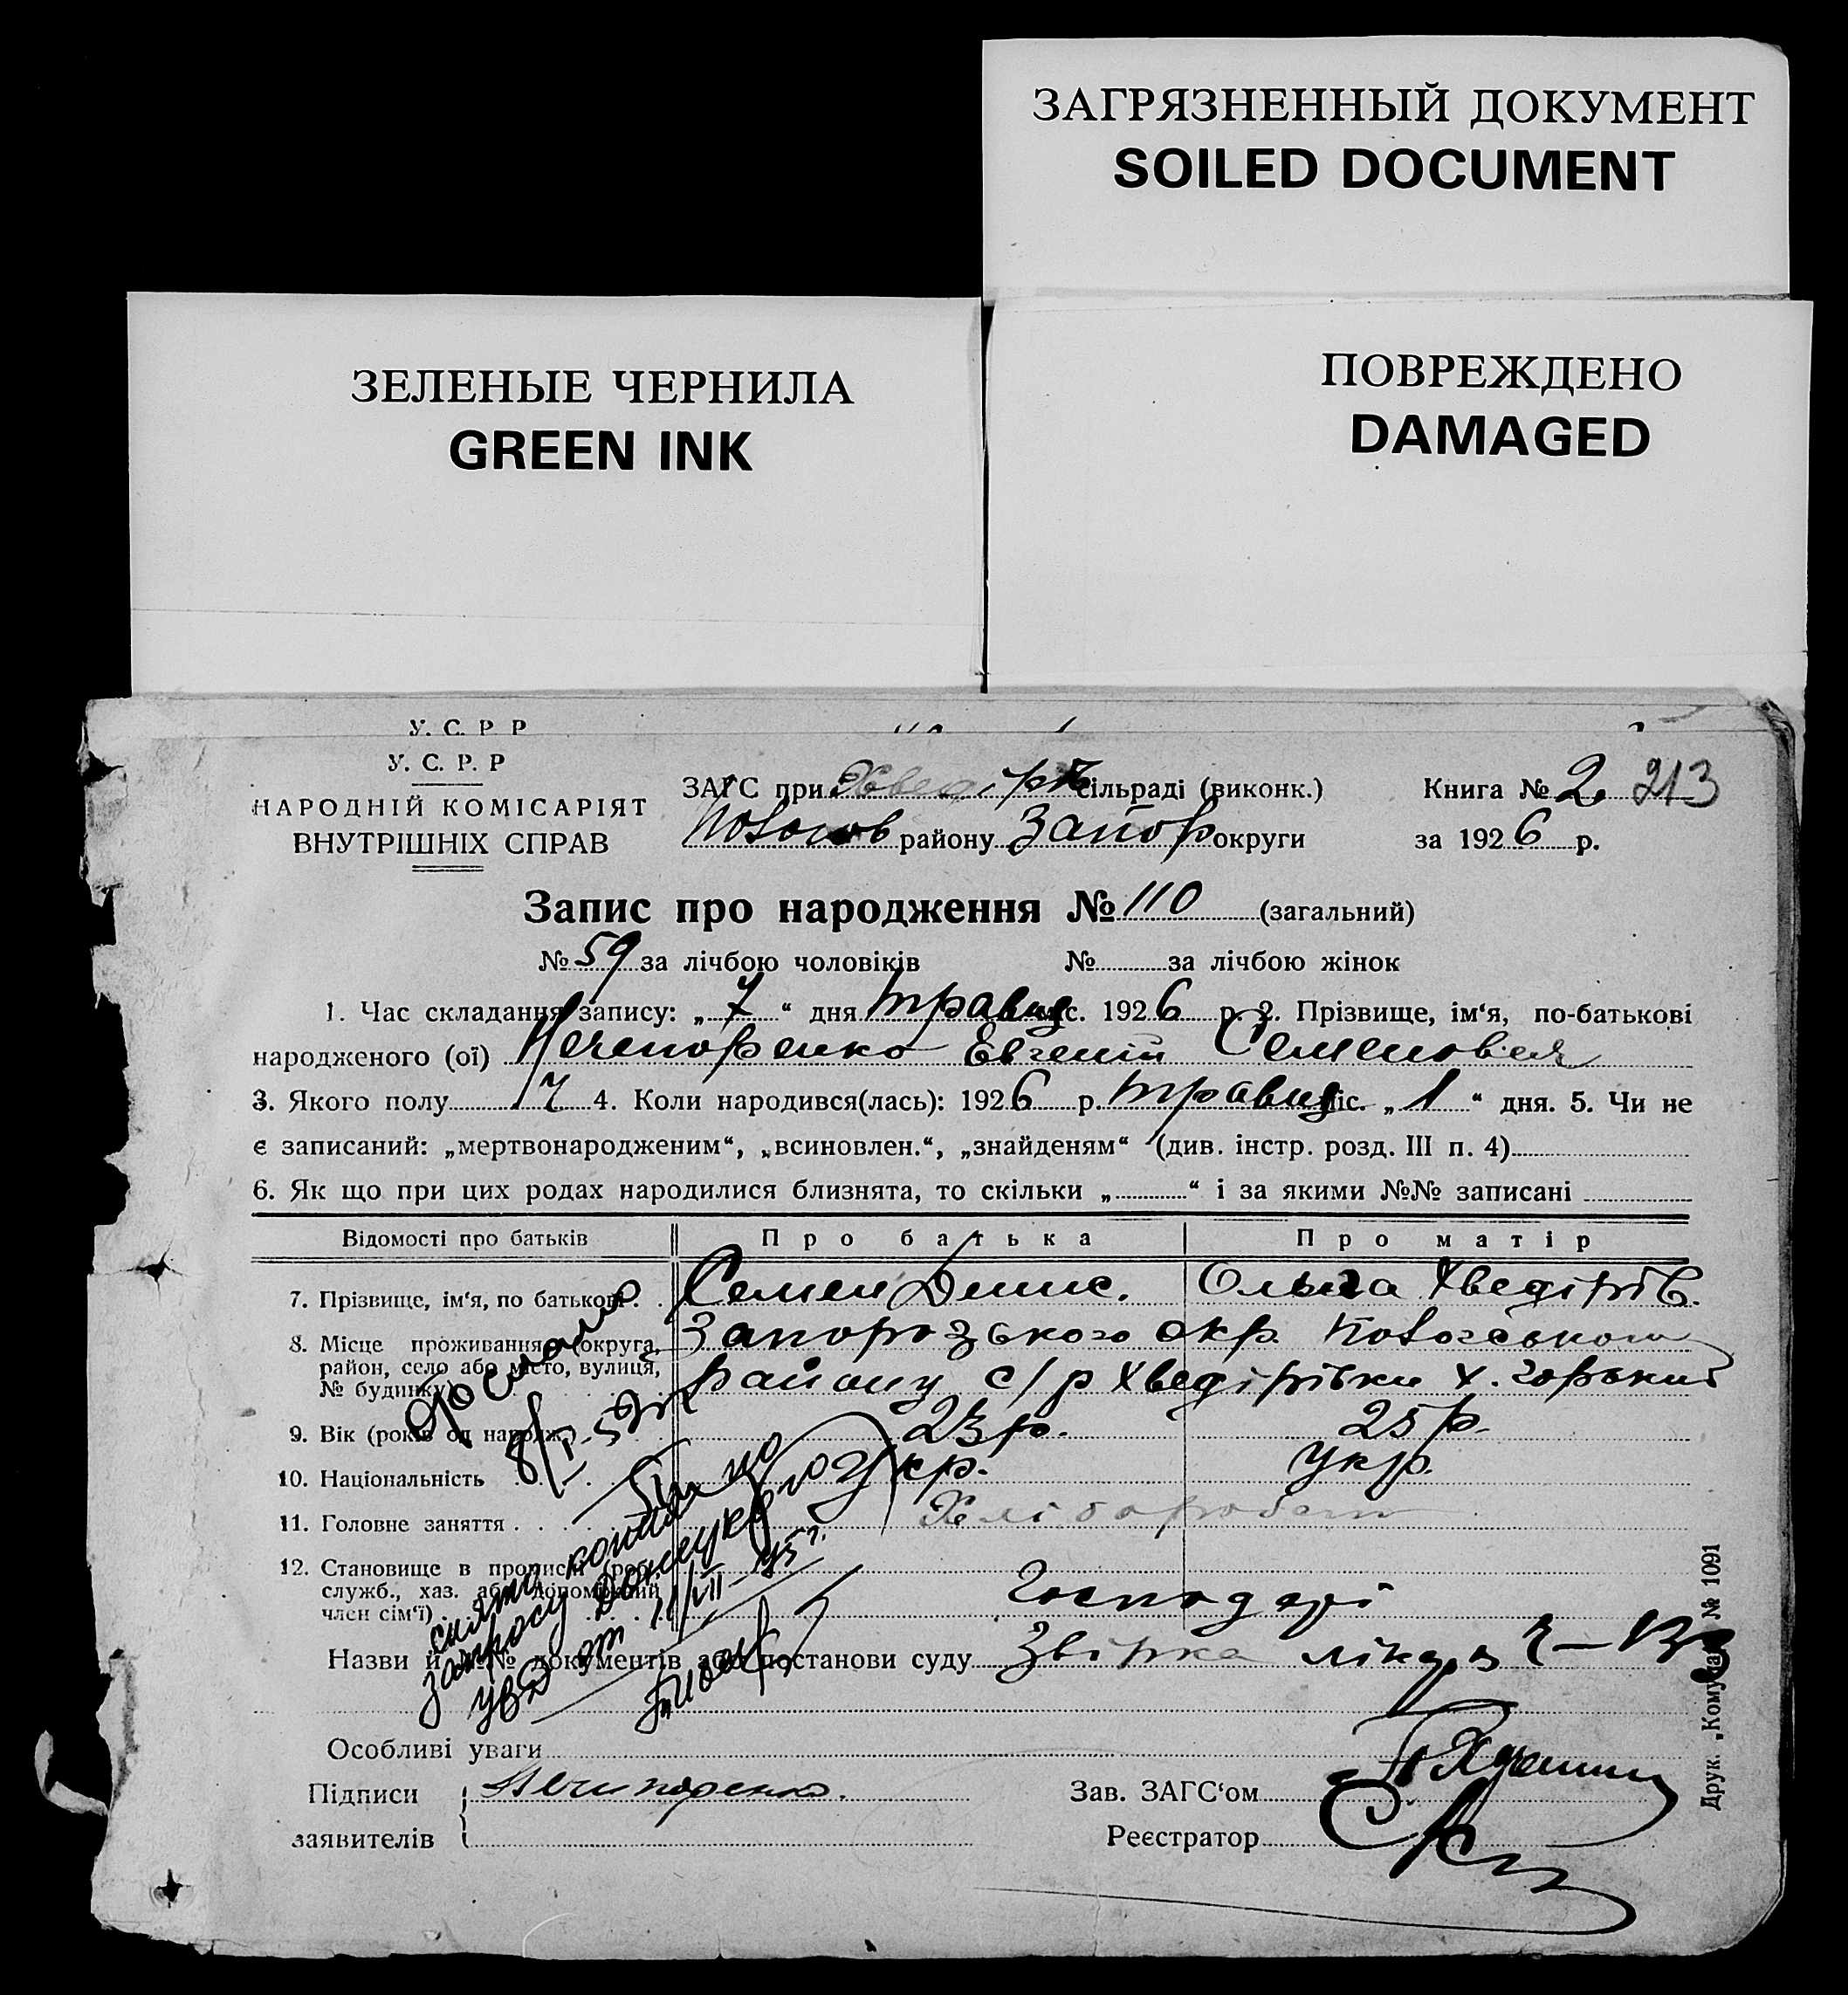 ЗАГРЯЗНЕННЫЙ ДОКУМЕНТ
SOILED DOCUMENT
ЗЕЛЕНЫЕ ЧЕРНИЛА
GREEN INK
ПОВРЕЖДЕНО
DAMAGED
У. С. Р Р
У. С. Р. Р
НАРОДНІЙ КОМІСАРІЯТ
ВНУТРІШНІХ СПРАВ
ЗАГС при Хведірів сільраді (виконк.) Книга № 2. 213
району Запор округи за 1926 р.
Запис про народження № 110 (загальний)
№ 59 за лічбою чоловіків № за лічбою жінок
1. Час складання запису: „7“ дня травня міс. 1926 р. 2. Прізвище, ім‘я, по-батькові
народженого (ої) Нечепоренко Евгеній Семенович
3. Якого полу Ч 4. Коли народився(лась): 1926 р. травня міс. „1“ дня. 5. Чи не
є записаний: „мертвонародженим“, „всиновлен.“, „знайденям“ (див. інстр. розд. III п. 4)
6. Як що при цих родах народилися близнята, то скільки „ “ і за якими №№ записані
Відомості про батьків Про батька Про матір
7. Прізвище, ім‘я, по батькові Семен Денис. Ольга Хведірів.
8. Місце проживання (округа, район, село або місто, вулиця, № будинку) Запорозького окр. Пологського
району с/р Хведірівки х. Горький
9. Вік (років од народж.) 23 р. 25 р.
10. Національність Укр. Укр.
11. Головне заняття Хлібороби
12. Становище в промислі (роб., служб., хаз. або допоміжний член сім‘ї) Господарі
Назви й №№ документів або постанови суду Звірка
Особливі уваги
Підписи заявителів Нечипоренко.
Зав. ЗАГС‘ом
Реєстратор
снята копия по
запросу Донецкого
УВД от 11/VII-75г.
Друк. „Комунар“ № 1091